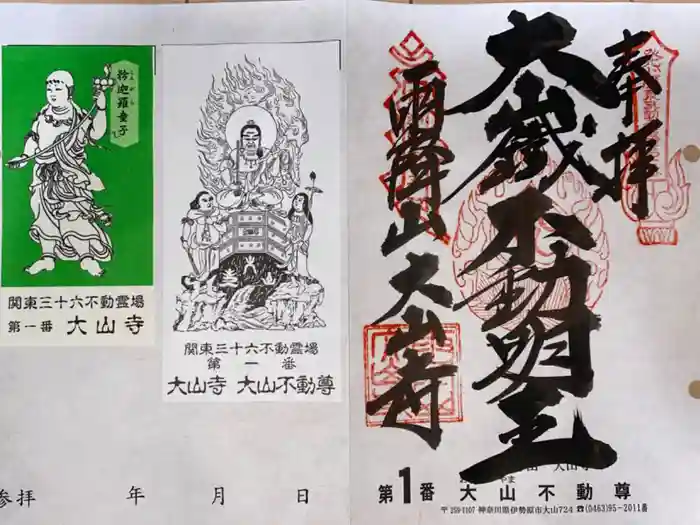 矜迦羅童子
こんがらどうじ
関東三十六不動霊場
第一番 大山寺
関東三十六不動霊場
第一番
大山寺 大山不動尊
参拝 年 月 日
奉拝
大山不動明王
雨降山 大山寺
第1番 大山不動尊
〒259-1107 神奈川県伊勢原市大山724 ☎(0463)95-2011番